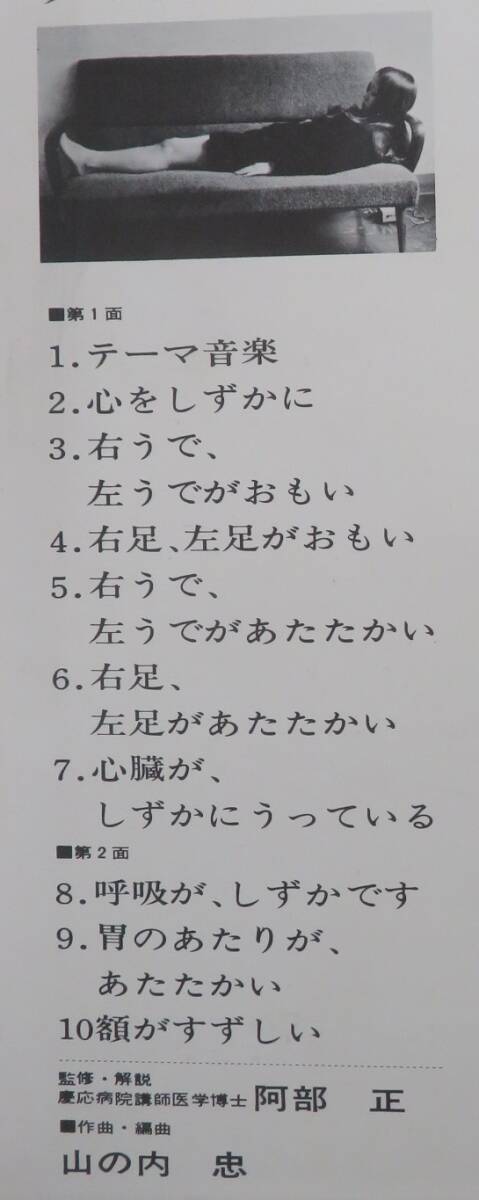 ■第1面
1.テーマ音楽
2.心をしずかに
3.右うで、
左うでがおもい
4.右足、左足がおもい
5.右うで、
左うであたたかい
6.右足、
左足があたたかい
7.心臓が、
しずかにうっている
■第2面
8.呼吸が、しずかです
9.胃のあたりが、
あたたかい
10額がすずしい
監修・解説
慶応病院講師医学博士 阿部 正
■作曲・編曲
山の内 忠